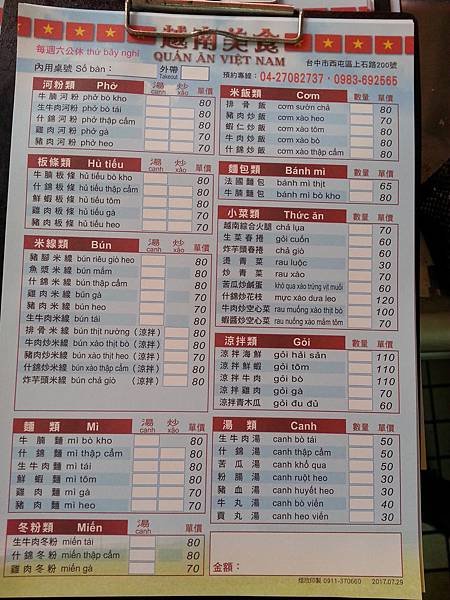 越南美食
QUÁN ĂN VIỆT NAM
每週六公休 thứ bảy nghỉ
台中市西屯區上石路200號
內用桌號 Số bàn:
外帶 Takeout
預約專線:04-27082737 · 0983-692565
河粉類 Phở 湯 canh 炒 xào 單價
牛腩河粉 phở bò kho 80
生牛肉河粉 phở bò tái 80
什錦河粉 phở thập cẩm 80
雞肉河粉 phở gà 70
豬肉河粉 phở heo 70
板條類 Hủ tiếu 湯 canh 炒 xào 單價
牛腩板條 hủ tiếu bò kho 80
什錦板條 hủ tiếu thập cẩm 80
鮮蝦板條 hủ tiếu tôm 80
雞肉板條 hủ tiếu gà 70
豬肉板條 hủ tiếu heo 70
米線類 Bún 湯 canh 炒 xào 單價
豬腳米線 bún riêu giò heo 80
魚漿米線 bún mắm 80
什錦米線 bún thập cẩm 80
雞肉米線 bún gà 70
豬肉米線 bún heo 70
生牛肉米線 bún tái 80
排骨米線 bún thịt nướng (涼拌) 80
牛肉炒米線 bún xào thịt bò (涼拌) 80
豬肉炒米線 bún xào thịt heo (涼拌) 70
什錦炒米線 bún xào thập cẩm (涼拌) 80
炸芋頭米線 bún chả giò (涼拌) 80
麵類 Mì 湯 canh 炒 xào 單價
牛腩麵 mì bò kho 80
什錦麵 mì thập cẩm 80
生牛肉麵 mì tái 80
鮮蝦麵 mì tôm 80
雞肉麵 mì gà 70
豬肉麵 mì heo 70
冬粉類 Miến 湯 canh 單價
生牛肉冬粉 miến tái 80
什錦冬粉 miến thập cẩm 80
雞肉冬粉 miến gà 70
米飯類 Cơm 數量 單價
排骨飯 cơm sườn chả 80
豬肉炒飯 cơm xào heo 70
蝦仁炒飯 cơm xào tôm 80
牛肉炒飯 cơm xào bò 80
什錦炒飯 cơm xào thập cẩm 80
麵包類 Bánh mì 數量 單價
法國麵包 bánh mì thịt 65
牛腩麵包 bánh mì bò kho 80
小菜類 Thức ăn 數量 單價
越南綜合火腿 chả lụa 70
生菜春捲 gỏi cuốn 60
炸芋頭春捲 chả giò 60
燙青菜 rau luộc 30
炒青菜 rau xào 70
苦瓜炒鹹蛋 khổ qua xào trứng vịt muối 60
什錦炒花枝 mực xào dưa leo 120
牛肉炒空心菜 rau muống xào thịt bò 100
蝦醬炒空心菜 rau nuống xào mắm tôm 70
涼拌類 Gỏi 數量 單價
涼拌海鮮 gỏi hải sản 110
涼拌鮮蝦 gỏi tôm 110
涼拌牛肉 gỏi bò 110
涼拌雞肉 gỏi gà 70
涼拌青木瓜 gỏi đu đủ 60
湯類 Canh 數量 單價
生牛肉湯 canh bò tái 50
什錦湯 canh thập cẩm 50
苦瓜湯 canh khổ qua 50
粉腸湯 canh ruột heo 30
豬血湯 canh huyết heo 30
牛丸湯 canh bò viên 40
貢丸湯 canh heo viên 30
金額:
0911-370660 2017.07.29